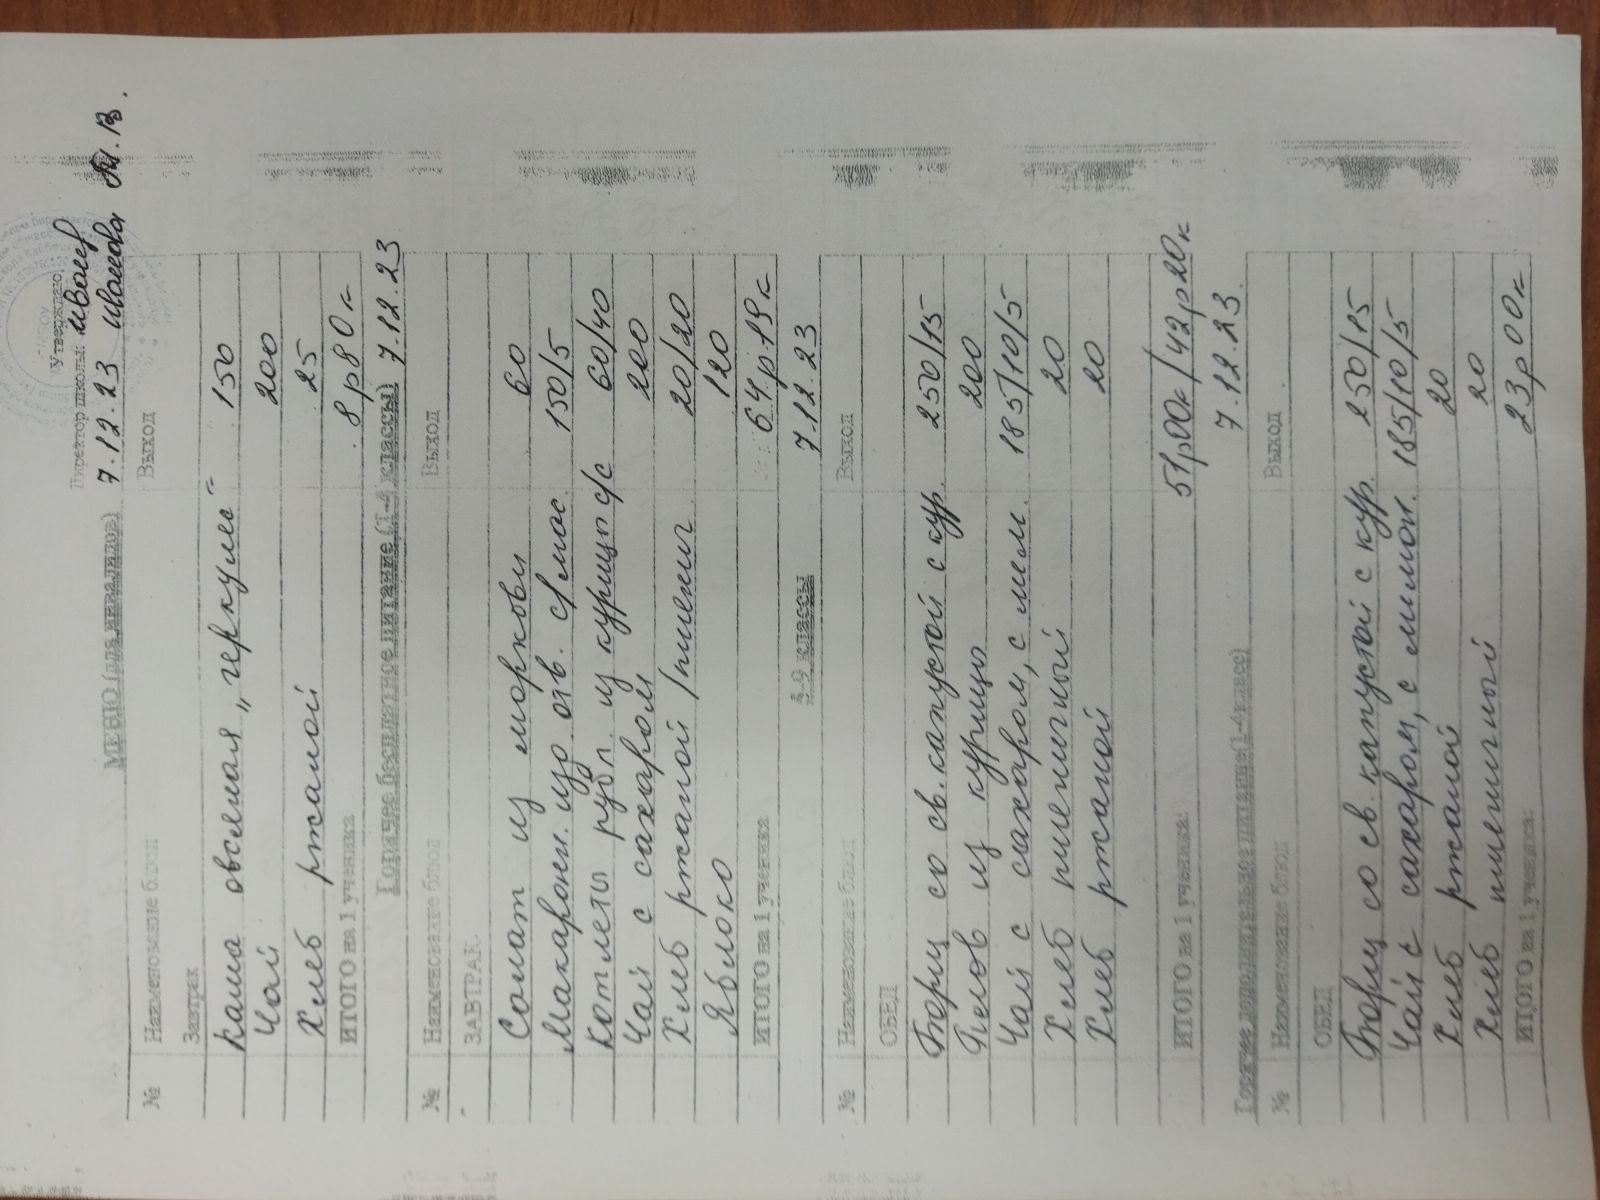 Утверждаю
Директор школы:
7.12.23 Иванова
МЕНЮ (для инвалидов)
№ Наименование блюд Выход
Завтрак
Каша овсяная „геркулес" 150
Чай 200
Хлеб ржаной 25
ИТОГО на 1 ученика 8р80к
Горячее бесплатное питание (1-4 классы) 7.12.23
№ Наименование блюд Выход
ЗАВТРАК
Салат из моркови 60
Макарон. изд. отв. с/мас. 150/5
Котлеты рубл. из курицы с/с 60/40
Чай с сахаром 200
Хлеб ржаной/пшенич. 20/20
Яблоко 120
ИТОГО на 1 ученика 64р19к
5-9 классы 7.12.23
№ Наименование блюд Выход
ОБЕД
Борщ со св. капустой с кур. 250/15
Плов из курицы 200
Чай с сахаром, с лим. 185/10/5
Хлеб пшеничный 20
Хлеб ржаной 20
ИТОГО на 1 ученика: 51р00к/42р20к
7.12.23.
Горячее дополнительное питание(1-4класс)
№ Наименование блюд Выход
ОБЕД
Борщ со св. капустой с кур. 250/15
Чай с сахаром, с лимон. 185/10/5
Хлеб ржаной 20
Хлеб пшеничный 20
ИТОГО на 1 ученика: 23р00к